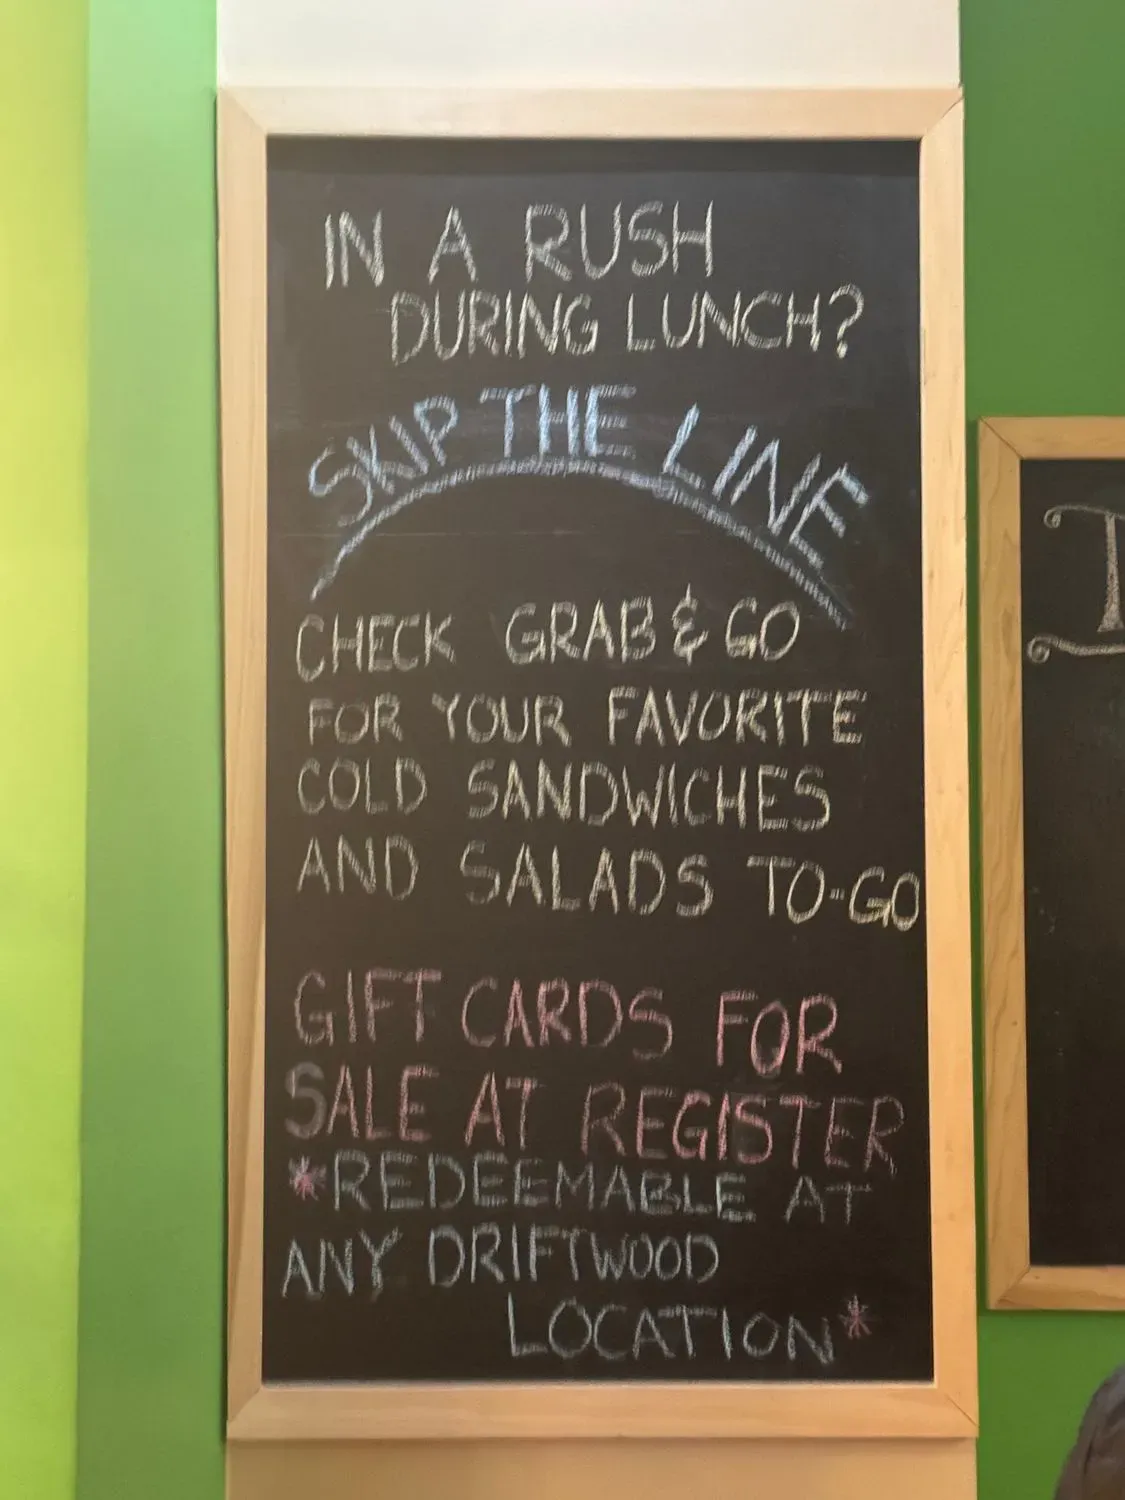 IN A RUSH
DURING LUNCH?
SKIP THE LINE
CHECK GRAB & GO
FOR YOUR FAVORITE
COLD SANDWICHES
AND SALADS TO-GO
GIFT CARDS FOR
SALE AT REGISTER
*REDEEMABLE AT
ANY DRIFTWOOD
LOCATION*